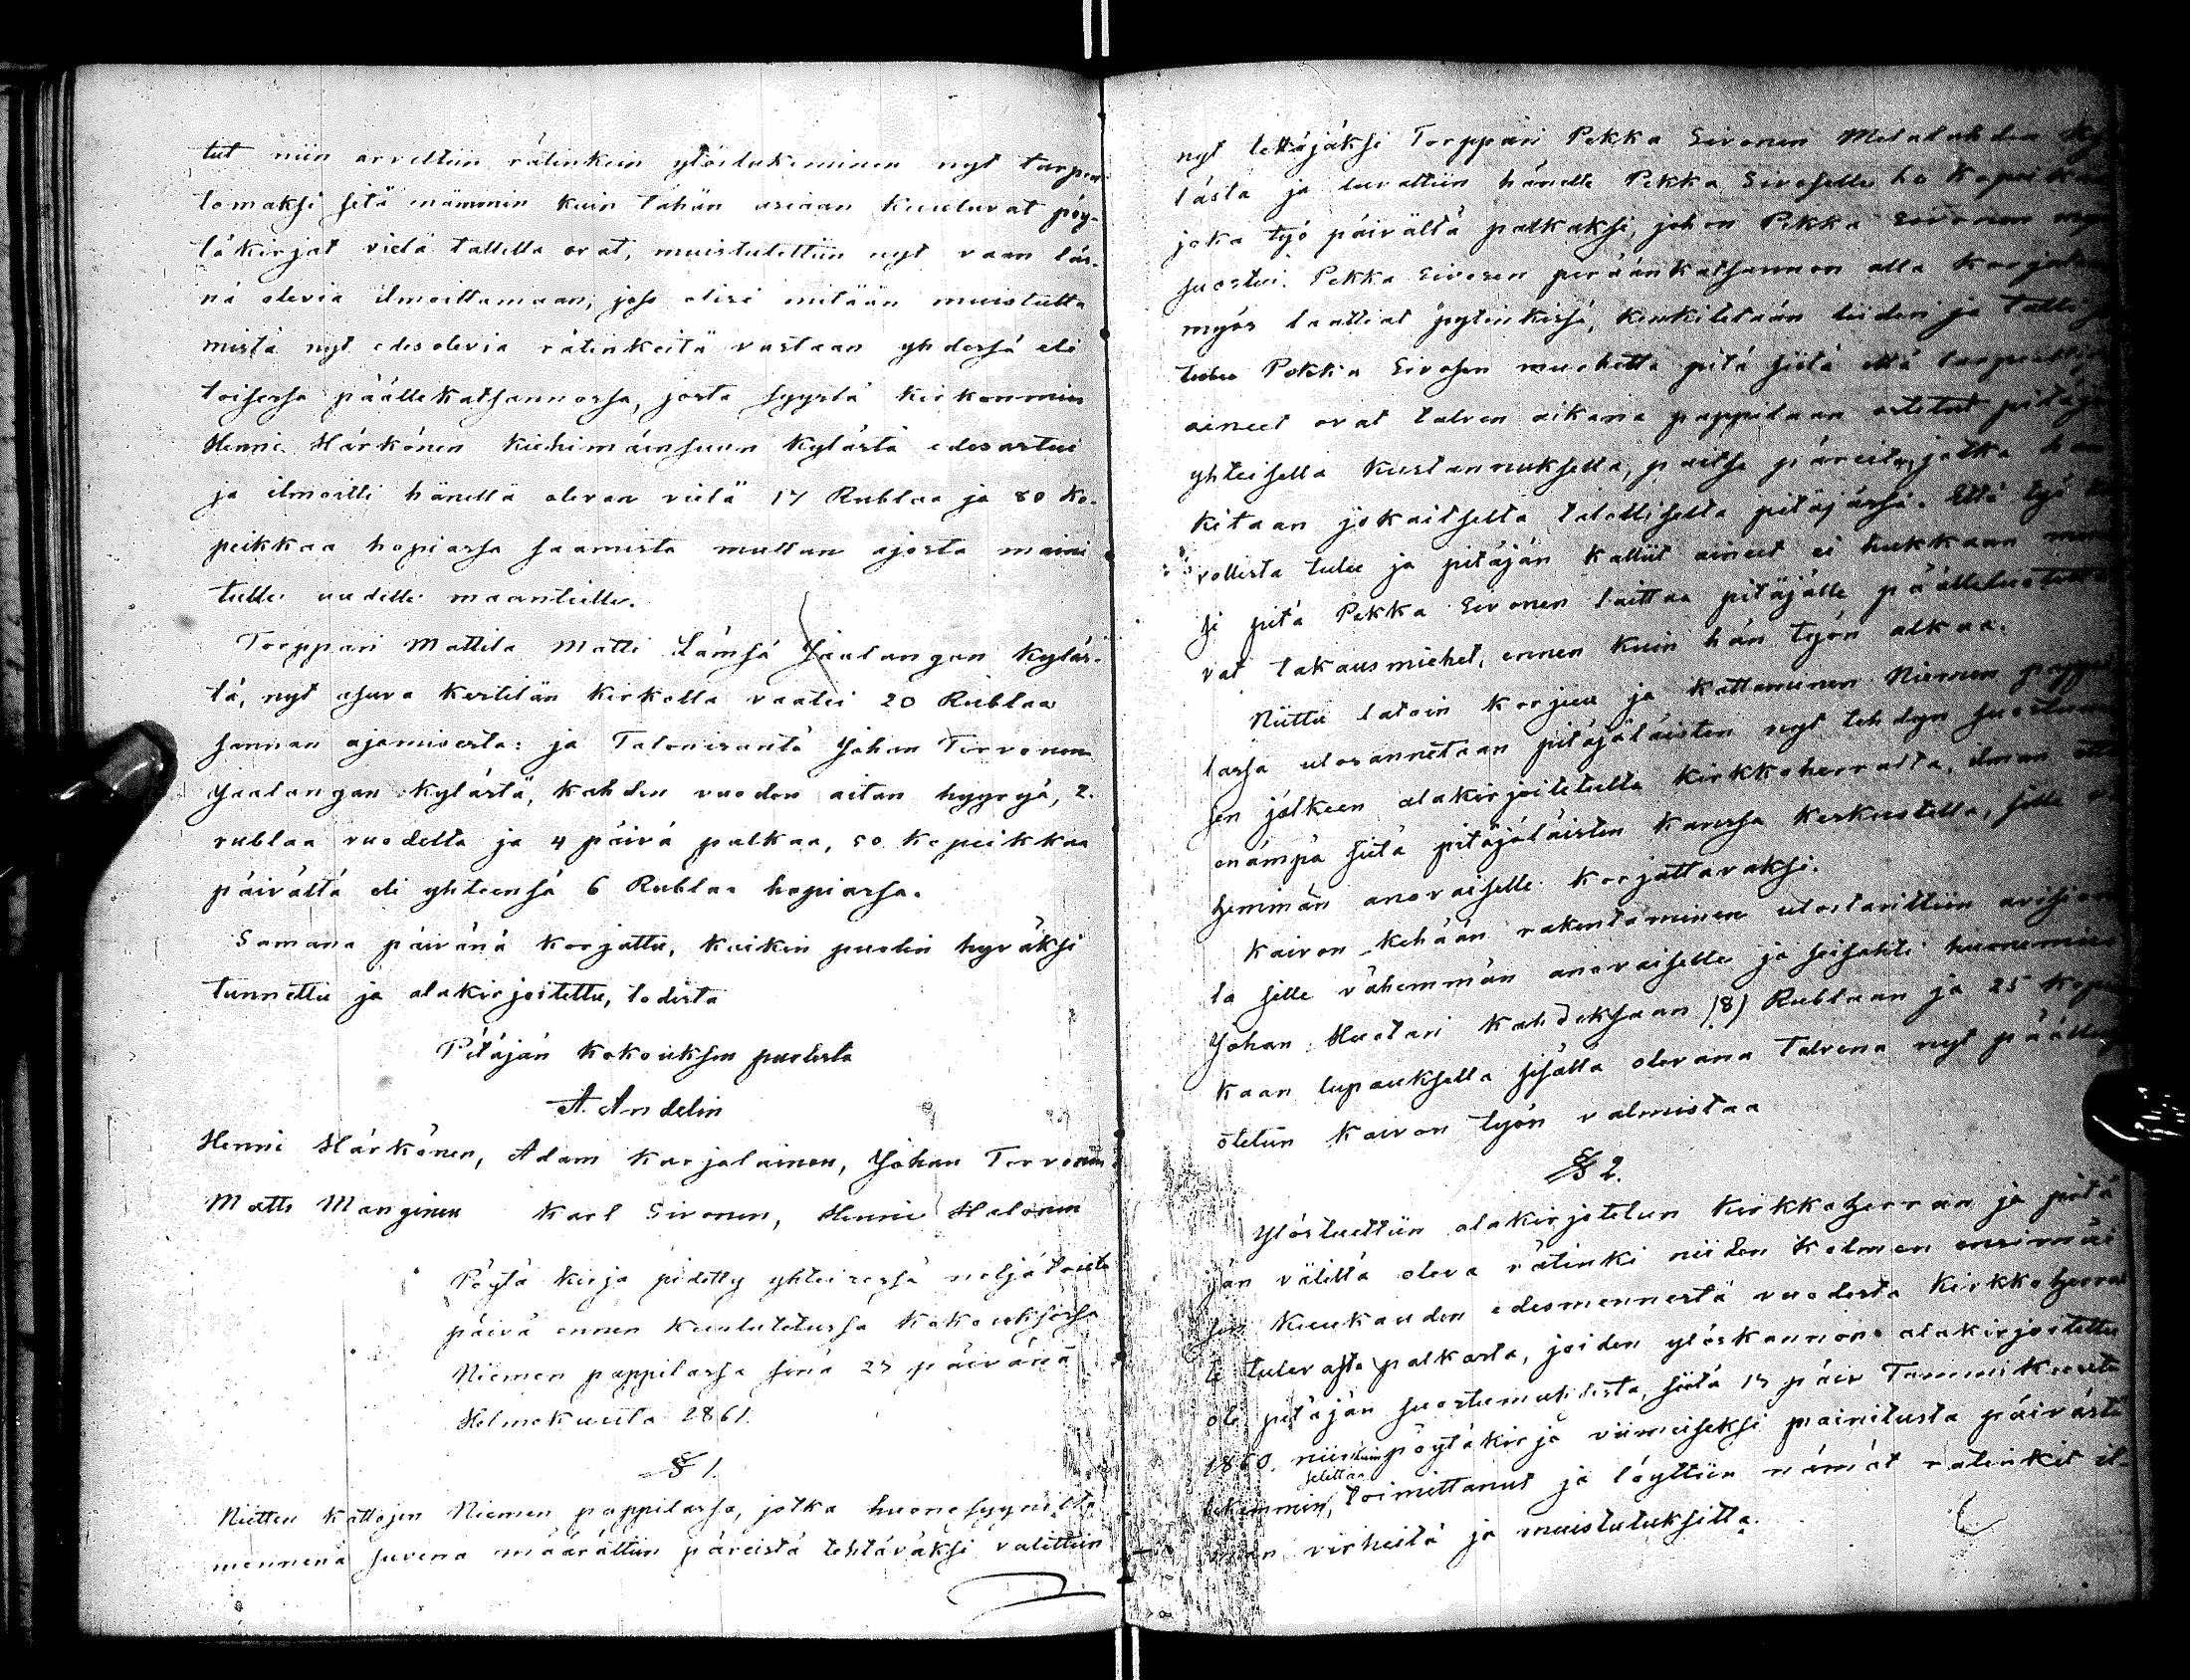 tut niin arveltiin rätinkein ylöslukeminen nyt tarpeet
tomaksi sitä mämmin kuin tähän asiaan kuuluvat pöy-
täkirjat vielä tallella ovat, muistutettiin nyt vaan läs-
nä olevia ilmoittamaan, jos olisi mitään muistutta
mista nyt edesolevia rätinkeitä vastaan yhdessä eli
toisessa päällekatsannossa, josta syystä kirkonmies
Henric Härkönen Kiehimäensuun kylästä edesastui
ja ilmoitti hänellä olevan vielä 17 Rublaa ja 80 ko-
peikkaa hopiassa saamista mullan ajosta maini
tulle uudelle maantielle.
Torppari Mattila Matti Lämsä Jaalangan kyläs-
tä, nyt asuva Kestilän kirkolla vaatei 20 Rublaa
sannan ajamisesta: ja Talonisäntä Johan Tervonen
Jaalangan kylästä, kahden vuoden aitan hyyryä, 2.
rublaa vuodelta ja 4 päivä palkaa, 50 kopeikkaa
päivältä eli yhteensä 6 Rublaa hopiassa.
Samana päivänä korjattu, kaikin puolin hyväksi
tunnettu ja alakirjoitettu, todista
Pitäjän kokouksen puolesta
A. Andelin
Henric Härkönen, Adam Karjalainen, Johan Tervonen
Matts Manginen Karl Sivonen, Henric Halonen
Pöytä kirja pidetty yhteisessä neljätoista
päivä ennen kuulutetussa kokouksessa
Niemen pappilassa sinä 25 päivänä
Helmekuuta 1861.
§ 1.
Niitten kattojen Niemen pappilassa, jotka huonesyynillä
mennenä suvena määrättiin päreistä tehtäväksi valittiin
nyt tettäjäksi Torppari Pekka Sivonen Melalahden ky
lästä ja luvattiin hänelle Pekka Sivoselle ho kopeikkaa
joka työ päivältä palkaksi, johon Pekka Sivonen myös
suostui. Pekka Sivosen peräänkatsannon alla korjataan
myös laattiat pytinkissä, kenkitetään leiden ja talli ja
Pekka Sivosen muchetta pitä siitä että tarpeelliset
aineet ovat talven aikana pappilaan ostetut pitäjän
yhteisellä kustannuksella, paitse päreitä, jotka han
kitaan jokaitselta talollisella pitäjässä. Että työ
vollista tulee ja pitäjän kalliit aineet ei hukkaan mene
si pitä Pekka Sivonen laittaa pitäjälle päälleluotetta
vat takausmiehet, ennen kuin hän työn alkaa.
Niittu latoin korjuu ja kattaminen Niemen pappi
lassa ulosannetaan pitäjäläisten nyt tehdyn suostumuk
sen jälkeen alakirjoitetulta kirkkoherralta, ilman että
enämpä siitä pitäjäläisten kanssa keskustella, sille vä
hemmän anovaiselle korjattavaksi.
Kaivon kehään rakentaminen ulostarittiin avision
la sille vähemmän anovaiselle ja seisahti huonemies
Johan Huotari kahdeksaan (8) Rublaan ja 25 kopeik
kaan lupauksella sisällä olevana Talvena nyt päällens
otetun kaivon työn valmistaa
§ 2.
Ylösluettiin alakirjotetun kirkkoherran ja pitä
jän välillä oleva rätinki niiden kolmen ensimäi
sen kuukauden edesmennestä vuodesta kirkkoherral
le tulevasta palkasta, joiden ylöskannon alakirjoitettu
oli pitäjän suostumuksesta, siitä 15 päiv Tammikuusta
1860. niinkuin pöytäkirja viimeiseksi mainitusta päivästä
selittaa
likemmin, toimittanut ja löyttiin nämät rätinkit il-
man virheitä ja muistutuksitta.